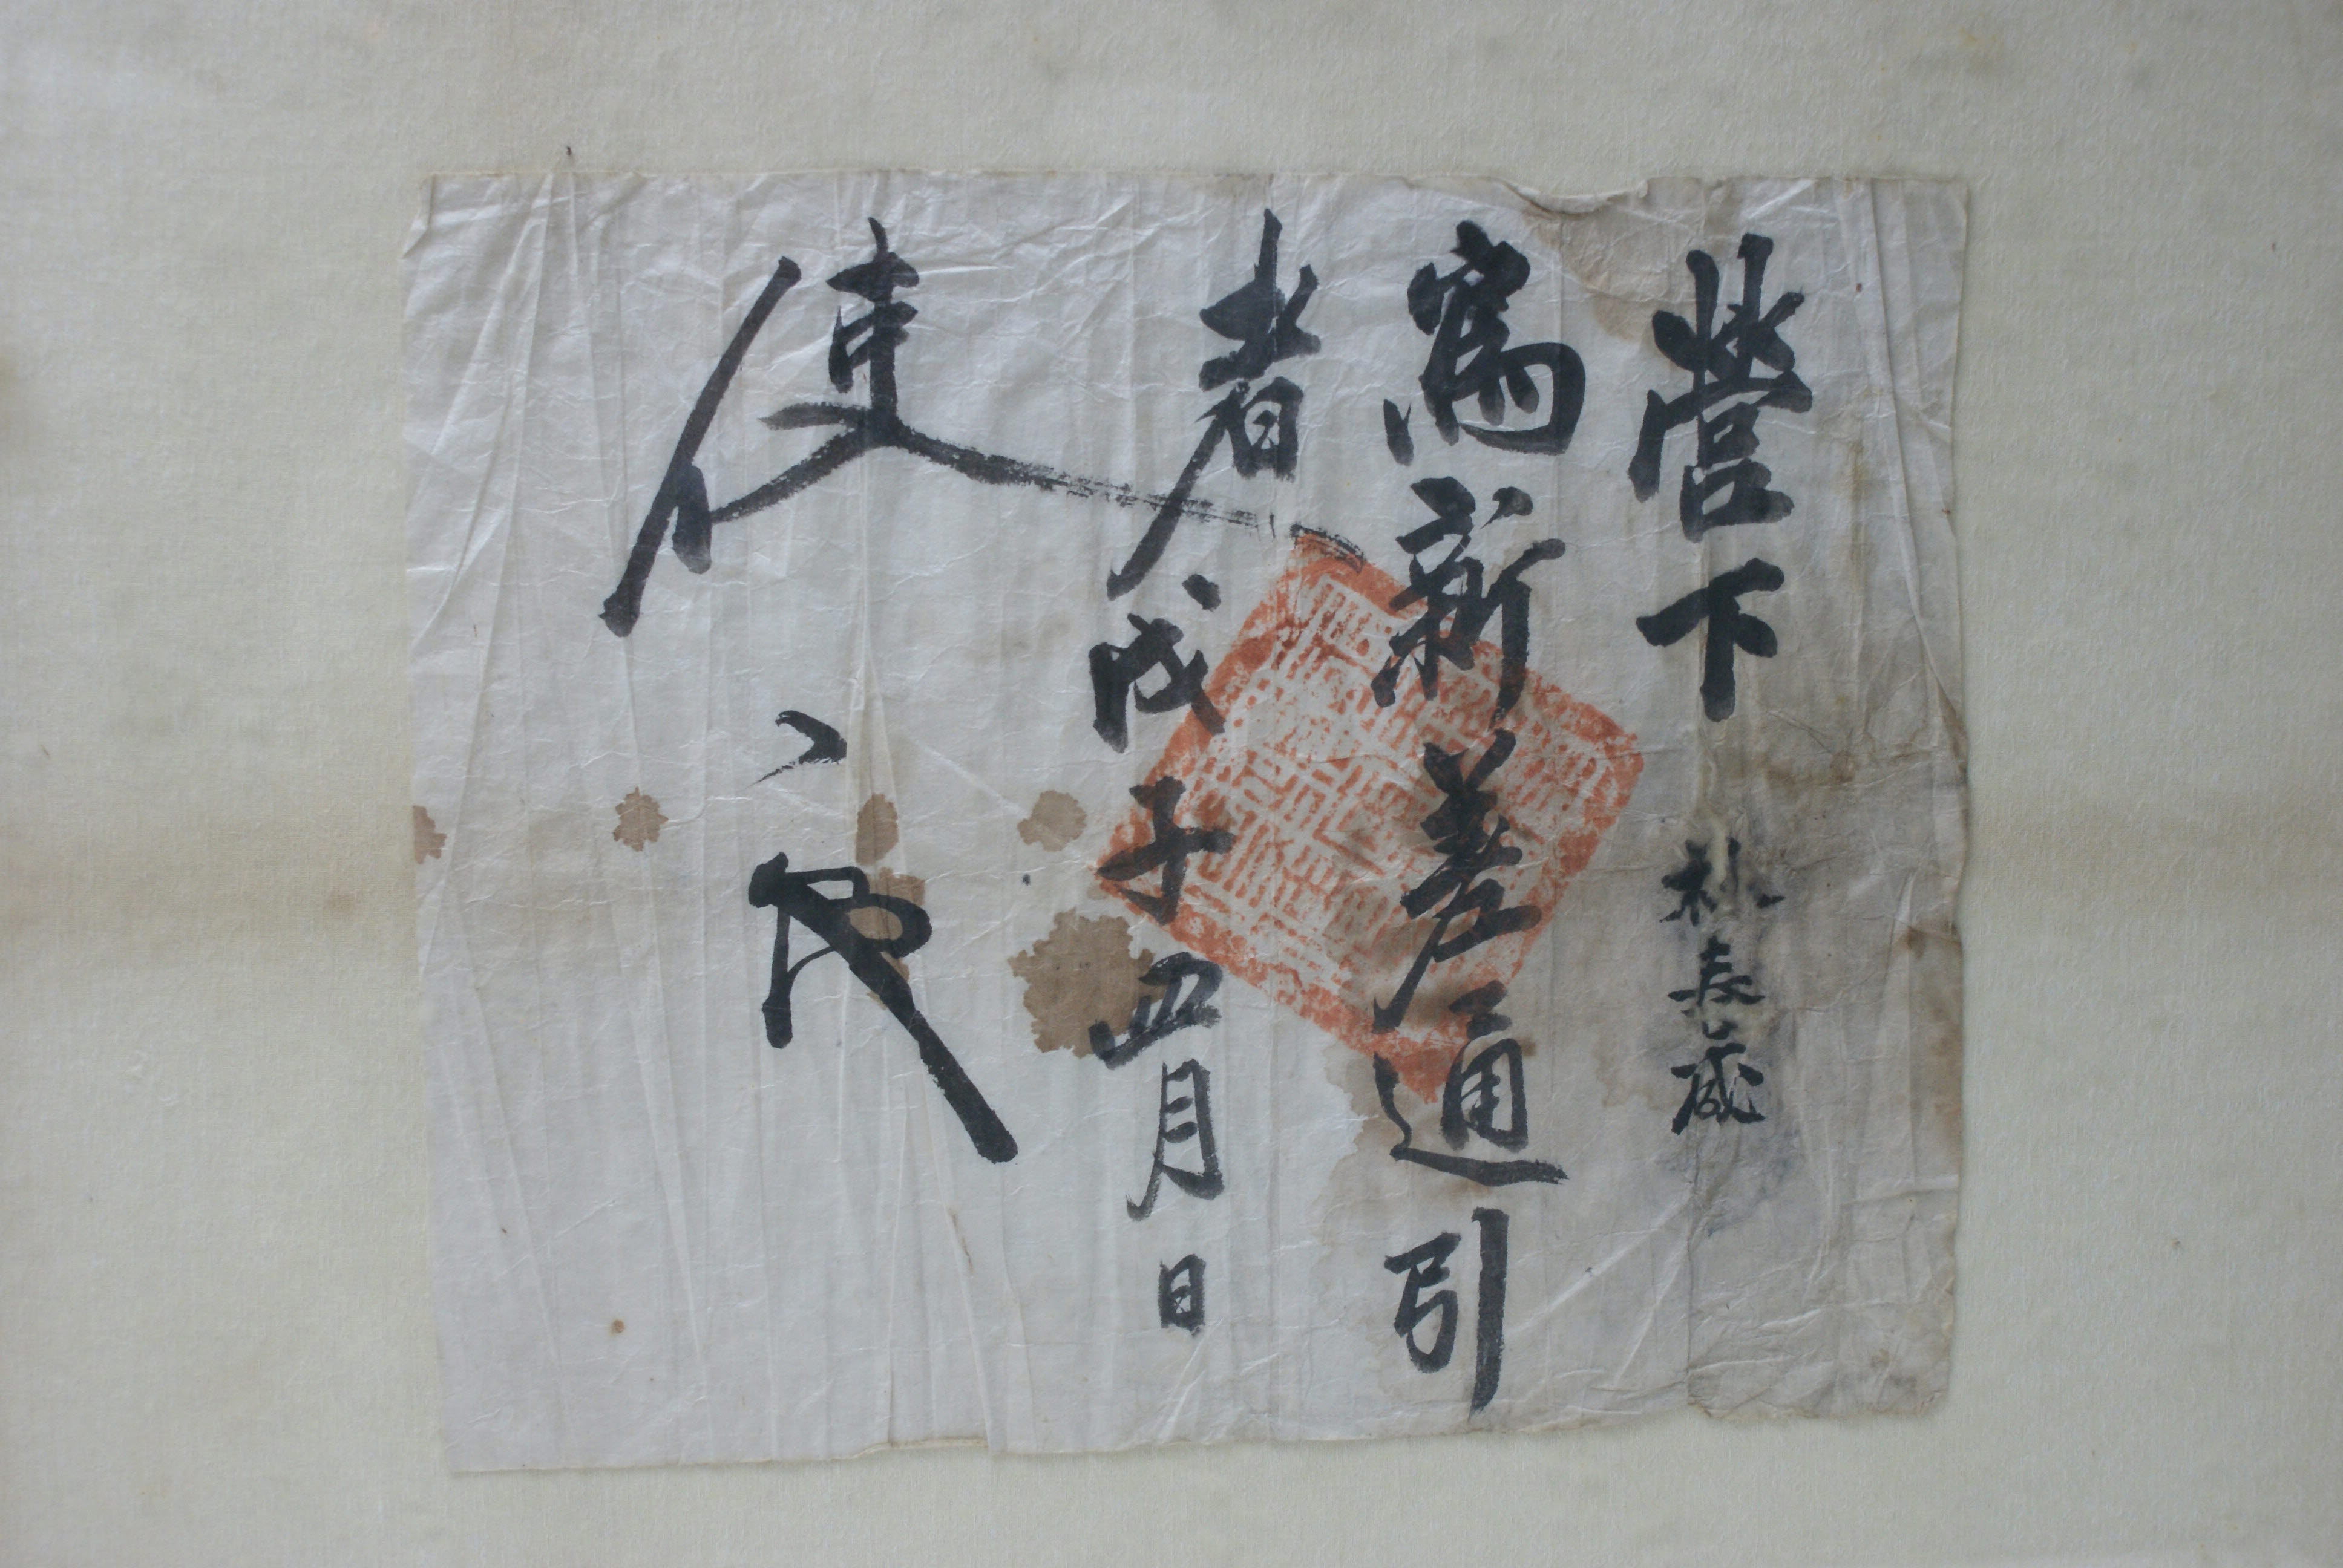 營下 朴春歲
爲新差通引
者戊子四月日
使